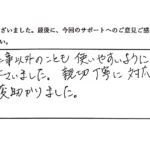 ざいました。最後に、今回のサポートへのご意見ご感
い。
事以外のことも使いやすいように
ざいました。親切丁寧に対応
変助かりました。